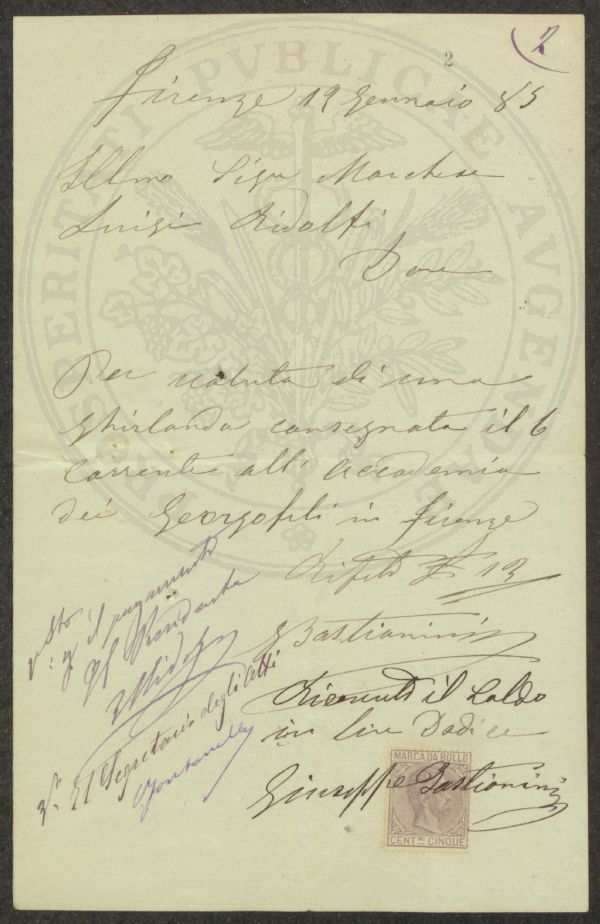 2
2
Firenze 12 Gennaio 85
Illmo Sigr Marchese
Luigi Ridolfi
Dare
Per valuta di una
Ghirlanda consegnata il 6
Corrente all' Accademia
dei Georgofili in Firenze
£ 12
GBastianini
Ricevuto il Saldo
in lire Dodice
Giuseppe Bastianini
Visto
p: il pagamento
Il Presidente
LRidolfi
Vo. Il Segretario degli Atti
Fontanelli
MARCA DA BOLLO
CENT.MI CINQUE
PROSPERITATI PVBLICAE AVGENDAE